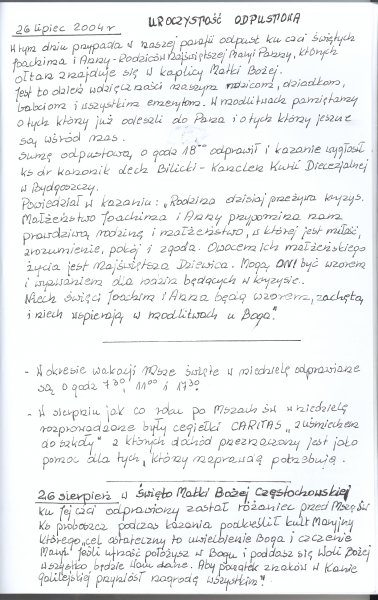 26 lipiec 2004 r UROCZYSTOŚĆ ODPUSTOWA
W tym dniu przypada w naszej parafii odpust ku czci świętych
Joachima i Anny - Rodziców Najświętszej Maryi Panny, których
ołtarz znajduje się w kaplicy Matki Bożej.
Jest to dzień wdzięczności naszym rodzicom, dziadkom,
babciom i wszystkim emerytom. W modlitwach pamiętamy
o tych którzy już odeszli do Pana i o tych którzy jeszcze
są wśród nas.
Sumę odpustową o godz 18°° odprawił i kazanie wygłosił
ks dr kanonik Lech Bilicki - Kanclerz Kurii Diecezjalnej
w Bydgoszczy.
Powiedział w kazaniu: „Rodzina dzisiaj przeżywa kryzys.
Małżeństwo Joachima i Anny przypomina nam
prawdziwą rodzinę i małżeństwo, w której jest miłość,
zrozumienie, pokój i zgoda. Owocem ich małżeńskiego
życia jest Najświętsza Dziewica. Mogą ONI być wzorem
i wyzwaniem dla rodzin będących w kryzysie.
Niech święci Joachim i Anna będą wzorem, zachętą
i niech wspierają w modlitwach u Boga".
- W okresie wakacji Msze święte w niedzielę odprawiane
są o godz 7³⁰, 11⁰⁰ i 17³⁰
- W sierpniu jak co roku po Mszach św w niedzielę
rozprowadzane były cegiełki CARITAS „Z uśmiechem
do szkoły" z których dochód przeznaczony jest jako
pomoc dla tych, którzy naprawdę potrzebują.
26 sierpień w święto Matki Bożej Częstochowskiej
ku Jej czci odprawiony został różaniec przed Mszą św
Ks proboszcz podczas kazania podkreślił kult Maryjny
którego „cel ostateczny to uwielbienie Boga i czczenie
Maryi. Jeśli ufność położysz w Bogu i poddasz się Woli Bożej
wszystko będzie Wam dane. Aby początek znaków w Kanie
Galilejskiej przyniósł nagrodę wszystkim".